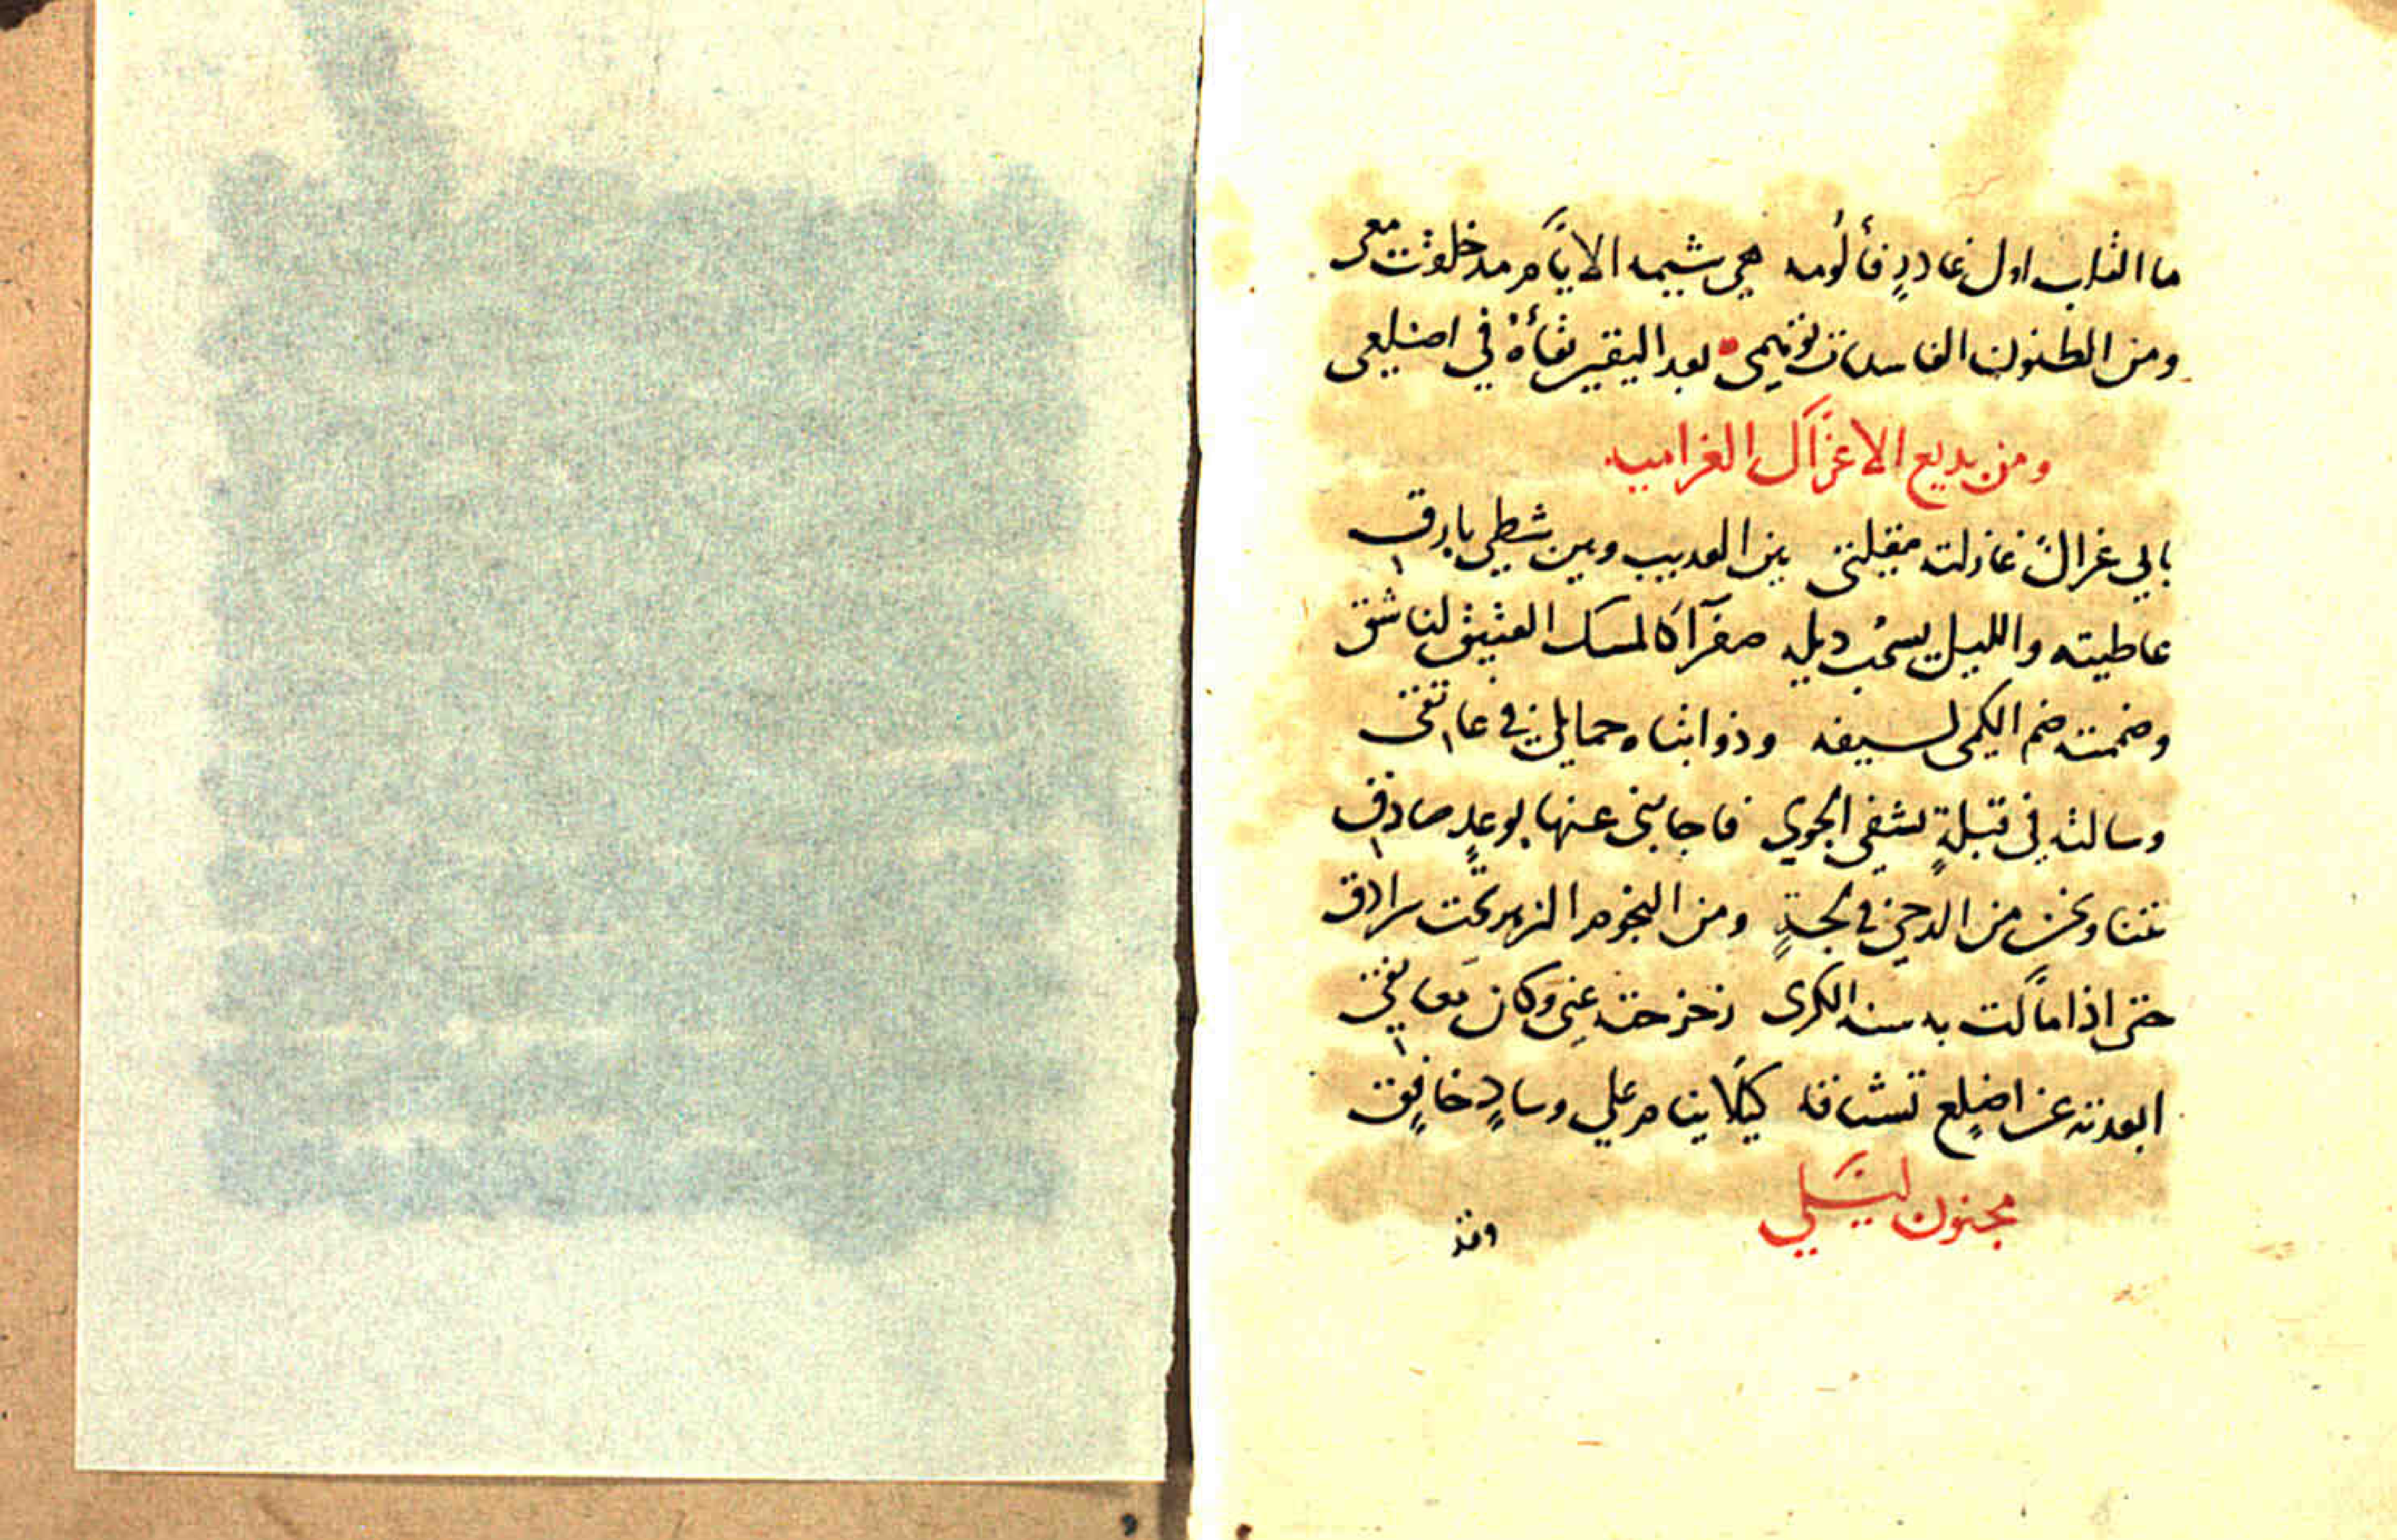 ما القلب اول غادرٍ فألُومه هي شيمه الايام مد خلقت معى
ومن الظنون الفاسدات توهمى بعد اليقين بقاَهُ في اضلعى
ومن بديع الاغزال الغراميه
بابي غزالٌ غازلته مقلتى بين العديب وبين شطي بارق
عاطيته والليل يسحب ديله صفرآ كالمسك العتيق لناشق
وضممته ضم الكمى لسيفه وذوابتاه حمايل في عاتقى
وسالته في قبلةٍ تشفى الجوي فاجابنى عنها بوعدٍ صادق
بتنا ونحن من الدجى في لجةٍ ومن النجوم الزهر تحت سرادق
حتى اذا مالت به سنه الكرى زحزحته عنى وكان معانقى
ابعدته عن اضلع تشتاقه كيلا ينام علي وسادٍ خافق
مجنون ليلي
وقد